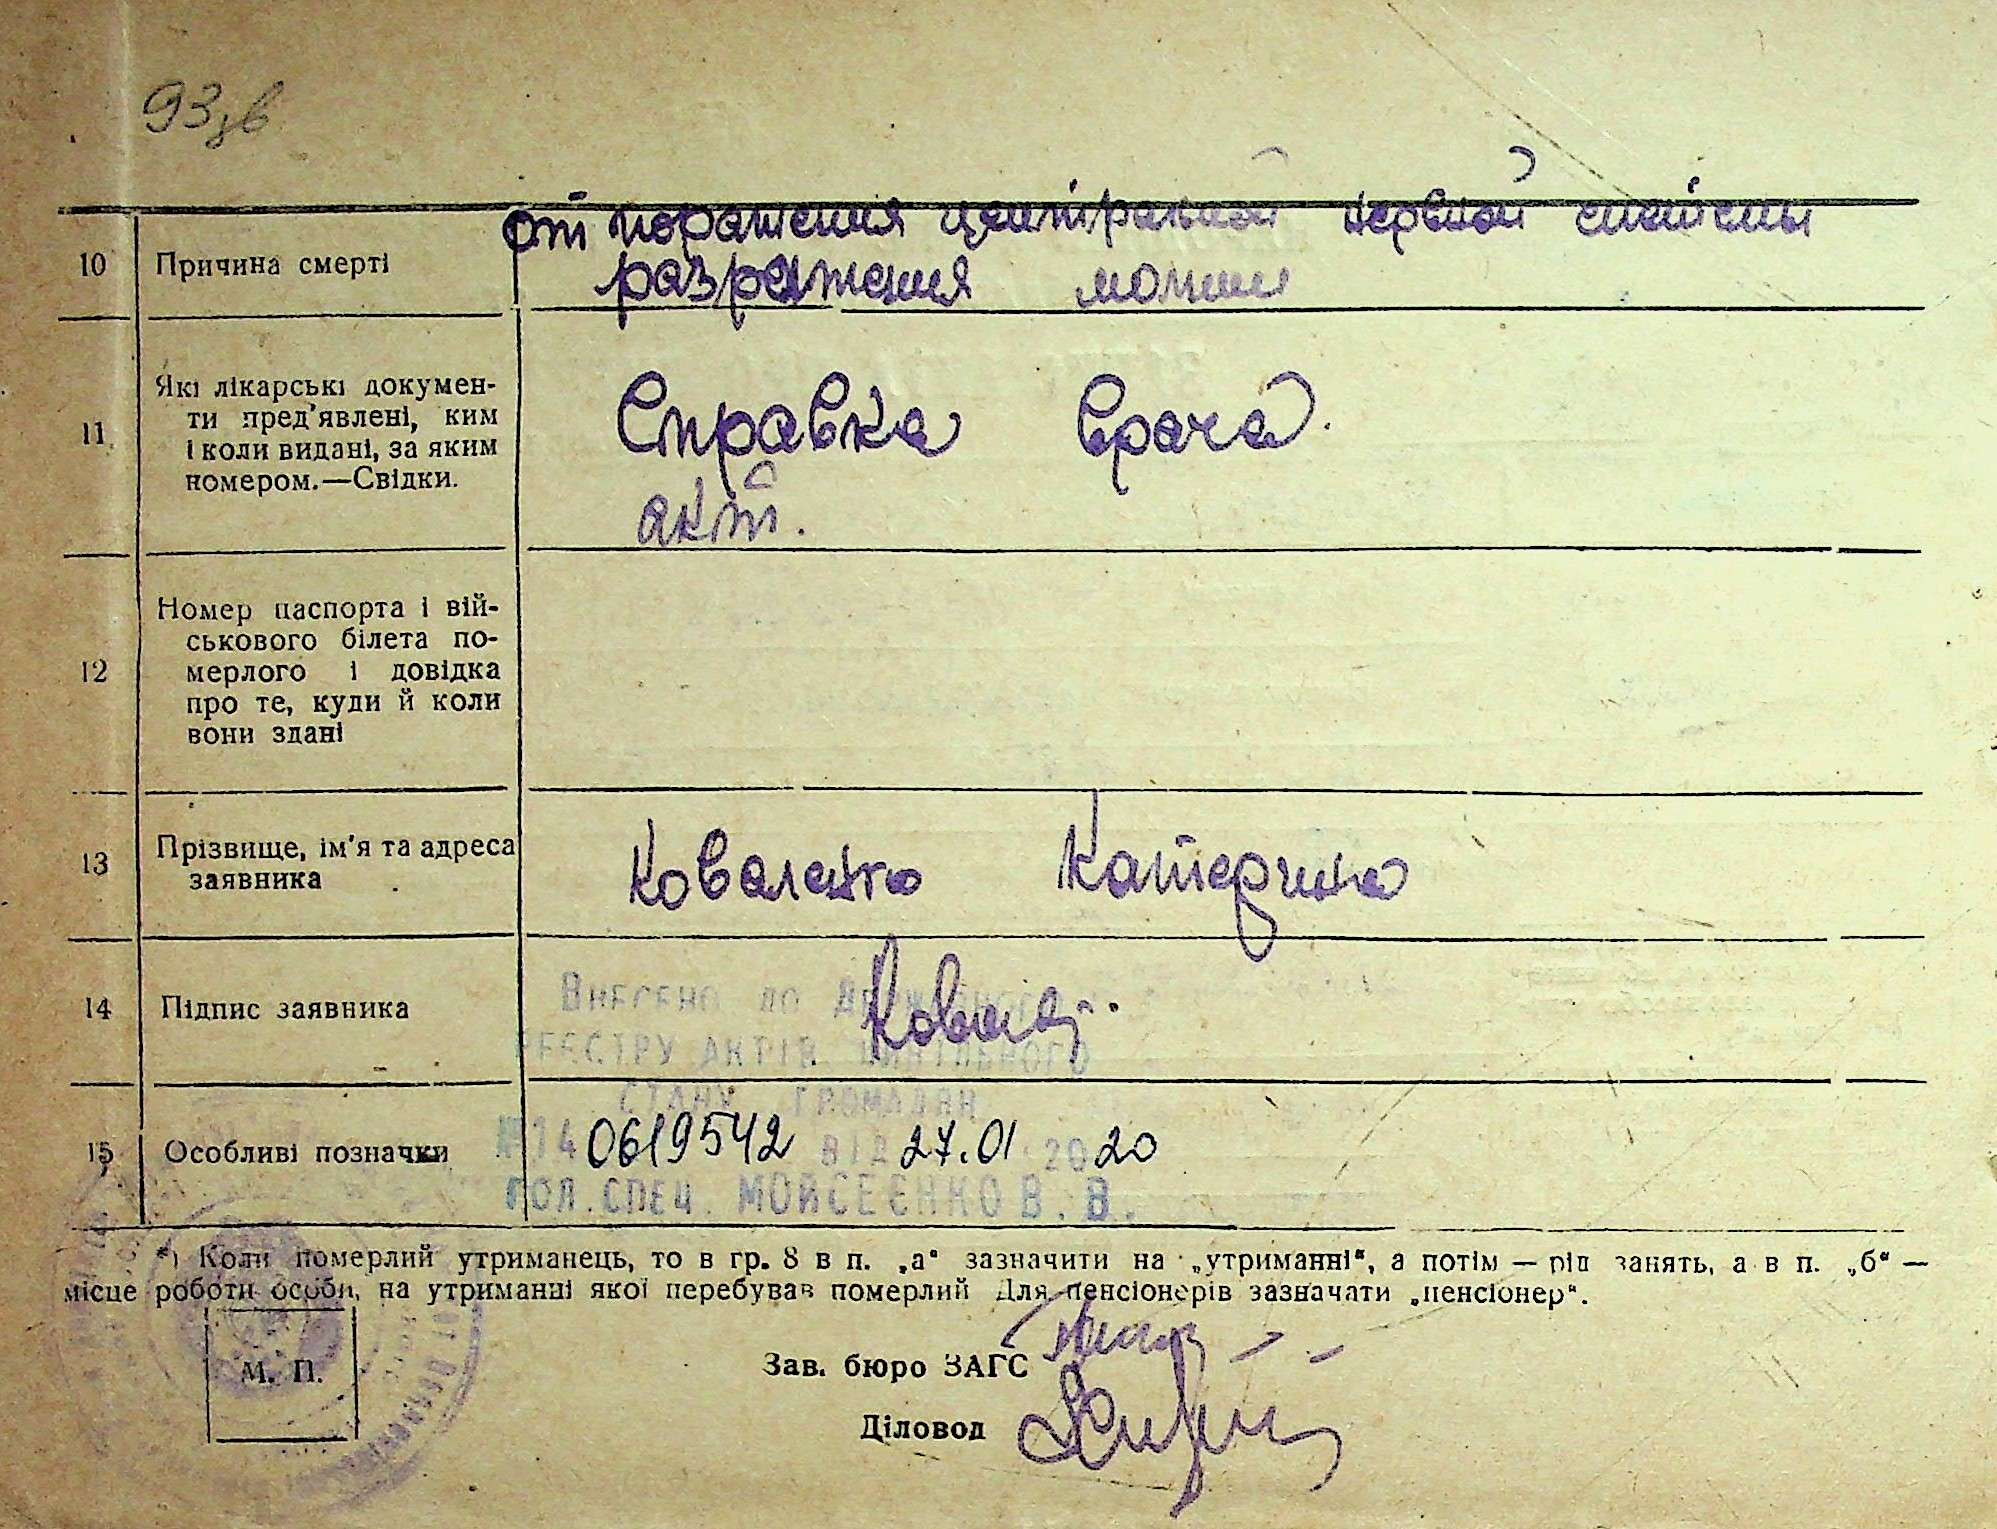 93зв
от поражения центральной нервной системы
10 Причина смерті
разражения молнии
11 Які лікарські докумен-
ти пред'явлені, ким
і коли видані, за яким
номером.—Свідки.
Справка врача.
акт.
12 Номер паспорта і вій-
ськового білета по-
мерлого і довідка
про те, куди й коли
вони здані
13 Прізвище, ім'я та адреса
заявника
Коваленко Катерина
14 Підпис заявника
Внесено до Державного
реєстру актів цивільного
стану громадян
15 Особливі позначки
№14 0619542 від 27.01.2020
Гол.спец. Мойсеєнко В.В.
*) Коли померлий утриманець, то в гр. 8 в п. „а“ зазначити на „утриманні“, а потім — рід занять, а в п. „б“ —
місце роботи особи, на утриманні якої перебував померлий Для пенсіонерів зазначати „пенсіонер“.
М. П.
Зав. бюро ЗАГС
Діловод